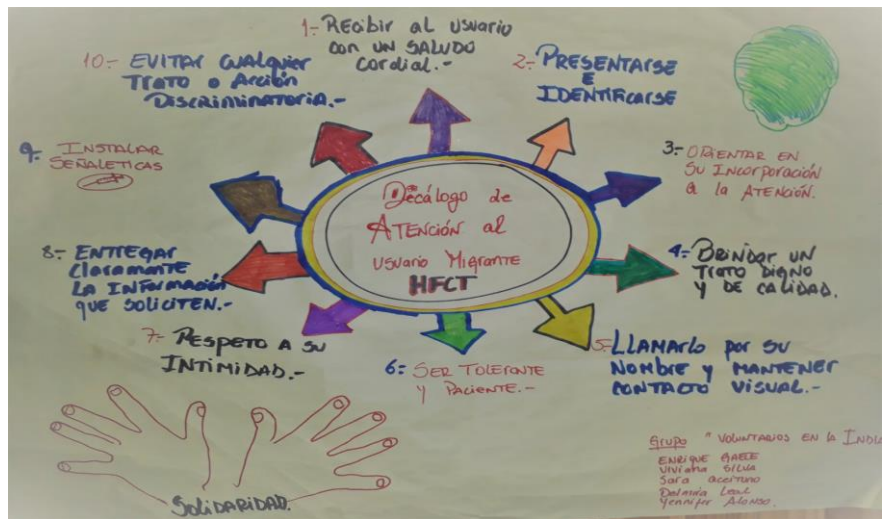 1.- RECIBIR al USUARIO
CON UN SALUDO
Cordial.-
2.- PRESENTARSE
E
IDENTIFICARSE
3.- ORIENTAR EN
SU INCORPORACIÓN
a la ATENCIÓN.
4.- BRINDAR UN
TRATO DIGNO
y DE CALIDAD.
5.- LLAMARLO POR SU
NOMBRE y MANTENER
CONTACTO VISUAL.-
6.- SER TOLERANTE
y PACIENTE.-
7.- RESPETO A SU
INTIMIDAD.-
8.- ENTREGAR
Claramante
LA INFORMACIÓN
QUE SOLICITEN.-
9.- INSTALAR
SEÑALETICAS
10.- EVITAR CUALQUIER
TRATO o ACCIÓN
DISCRIMINATORIA.-
Decálogo de
ATENCIÓN al
USUARIO MIGRANTE
HFCT
SOLIDARIDAD.
Grupo " VOLUNTARIOS EN LA INDIA
ENRIQUE GAETE
VIVIANA SILVA
Sara aceituno
Leal
Yennifer Alonso.